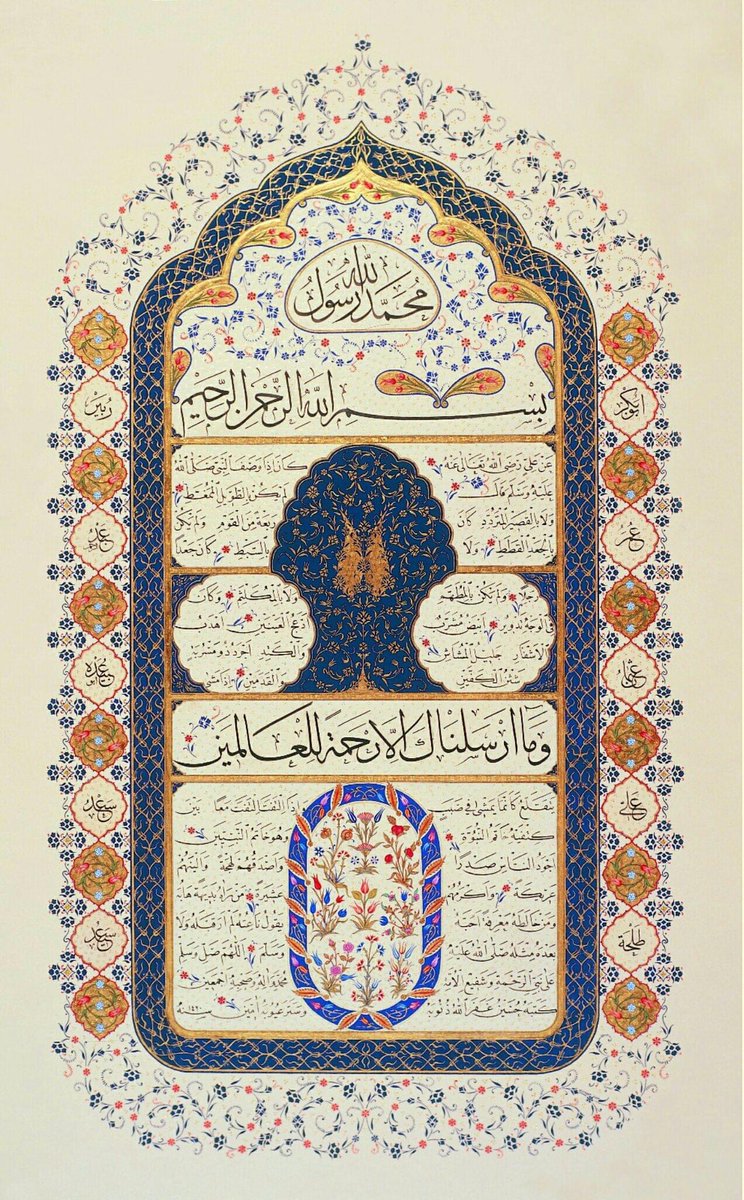 محمد رسول الله
بسم الله الرحمن الرحيم
عن علي رضي الله تعالى عنه كان اذا وصف النبي صلى الله
عليه وسلم قال لم يكن بالطويل الممغط
ولا بالقصير المتردد كان ربعة من القوم ولم يكن
بالجعد القطط ولا بالسبط كان جعدا
رجلا ولم يكن بالمطهم ولا بالمكلثم وكان
في الوجه تدوير ابيض مشرب ادعج العينين اهدب
الاشفار جليل المشاش والكتد اجرد ذو مسربة
شثن الكفين والقدمين اذا مشى
وما ارسلناك الا رحمة للعالمين
يتقلع كانما يمشي في صبب واذا التفت التفت معا بين
كتفيه خاتم النبوة وهو خاتم النبيين
اجود الناس صدرا واصدقهم لهجة والينهم
عريكة واكرمهم عشيرة من رآه بديهة هابه
ومن خالطه معرفة احبه يقول ناعته لم ار قبله ولا
بعده مثله صلى الله عليه وسلم اللهم صل وسلم
على نبي الرحمة وشفيع الامة وعلى آله وصحبه اجمعين
كتبه غفر الله ذنوبه وستر عيوبه آمين سنة
ابوبكر
عمر
عثمان
علي
طلحة
زبير
ابو عبيده
سعد
سعيد